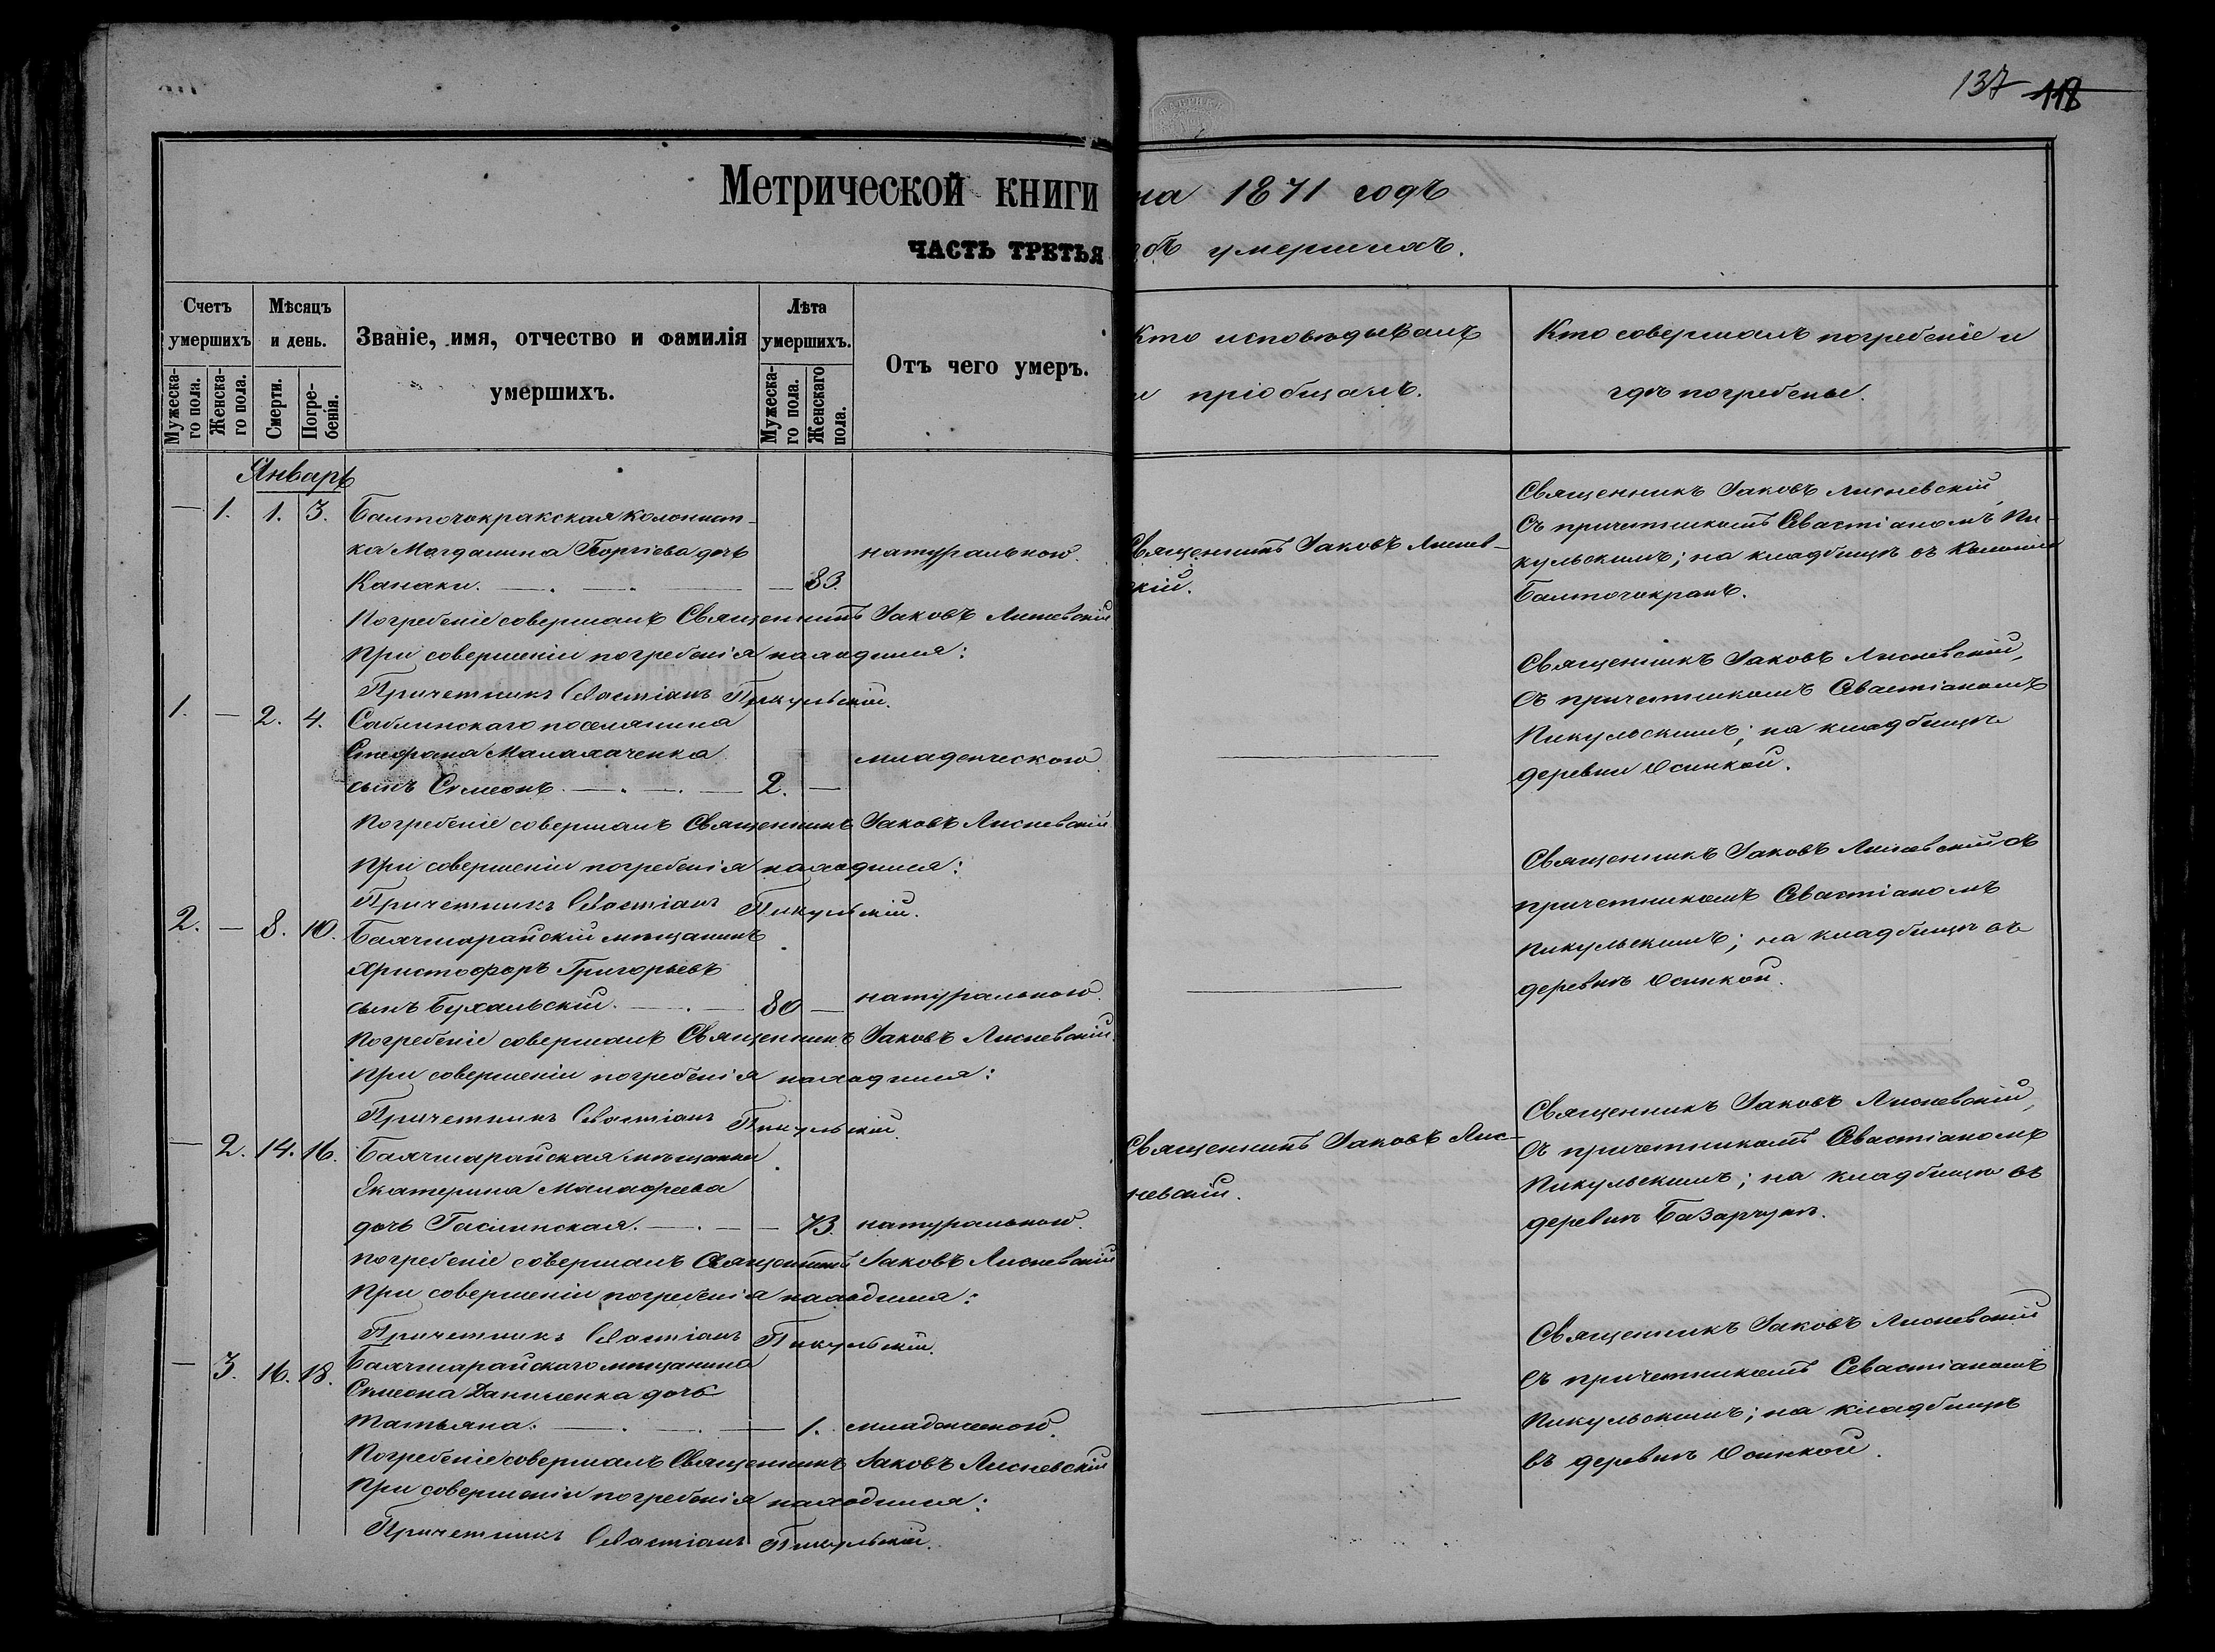 137 118
Метрической книги на 1871 годъ
ЧАСТЬ ТРЕТЬЯ объ умершихъ.
Счетъ умершихъ
Мужеска-го пола.
Женска-го пола.
Мѣсяцъ и день.
Смерти.
Погре-бенія.
Званіе, имя, отчество и фамилія
умершихъ.
Лѣта умершихъ.
Мужеска-го пола.
Женскаго пола.
Отъ чего умеръ.
Кто исповѣдывалъ
и пріобщалъ.
Кто совершалъ погребеніе и
гдѣ погребены.
Январь
— 1. 1. 3. Балточокракская колонист-
ка Магдалина Георгіева дочь
Канаки. — 83. натуральною.
Священникъ Іаковъ Лиснев-
скій.
Священникъ Іаковъ Лисневскій,
съ причетникомъ Севастіаномъ Пи-
кульскимъ; на кладбищѣ въ Колоніи
Балточокракъ.
Погребеніе совершалъ Священникъ Іаковъ Лисневскій
При совершеніи погребенія находился:
Причетникъ Севастіанъ Пикульскій.
1. — 2. 4. Саблинскаго поселянина
Стефана Малахаченка
сынъ Симеонъ. — 2. — младенческою.
Священникъ Іаковъ Лисневскій,
съ причетникомъ Севастіаномъ
Пикульскимъ; на кладбищѣ
деревни Осинкой.
Погребеніе совершалъ Священникъ Іаковъ Лисневскій
При совершеніи погребенія находился:
Причетникъ Севастіанъ Пикульскій.
2. — 8. 10. Бахчисарайскій мѣщанинъ
Христофоръ Григорьевъ
сынъ Бухальскій. — 80 — натуральною.
Священникъ Іаковъ Лисневскій съ
причетникомъ Севастіаномъ
Пикульскимъ; на кладбищѣ въ
деревнѣ Осинкой.
Погребеніе совершалъ Священникъ Іаковъ Лисневскій.
При совершеніи погребенія находился:
Причетникъ Севастіанъ Пикульскій.
— 2. 14. 16. Бахчисарайская мѣщанка
Екатерина Малафеева
дочь — 73. натуральною.
Священникъ Іаковъ Лис-
невскій.
Священникъ Іаковъ Лисневскій,
съ причетникомъ Севастіаномъ
Пикульскимъ; на кладбищѣ въ
деревнѣ Базарчукъ.
Погребеніе совершалъ Священникъ Іаковъ Лисневскій
При совершеніи погребенія находился:
Причетникъ Севастіанъ Пикульскій.
— 3. 16. 18. Бахчисарайскаго мѣщанина
Симеона Даниленка дочь
Татьяна. — 1. младенческою.
Священникъ Іаковъ Лисневскій
съ причетникомъ Севастіаномъ
Пикульскимъ; на кладбищѣ
въ деревнѣ Осинкой.
Погребеніе совершалъ Священникъ Іаковъ Лисневскій
При совершеніи погребенія находился:
Причетникъ Севастіанъ Пикульскій.